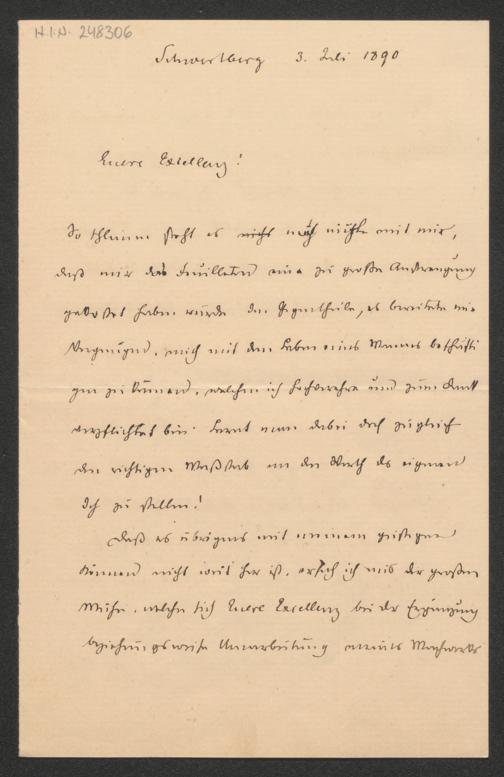 H.I.N. 248306
Schwertberg 3. Juli 1890
Euere Excellenz!
So schlimm steht es nicht noch nicht mit mir,
daß mir das Feuilleton eine zu große Anstrengung
gekostet haben würde. Im Gegentheile, es bereitete mir
Vergnügen, mich mit dem Leben eines Mannes beschäfti
gen zu können, welchen ich hochverehre und zum Dank
verpflichtet bin. Lernt man dabei doch zugleich
den richtigen Maßstab an den Werth des eigenen
Ich zu stellen!
Daß es übrigens mit meinem geistigen
Können nicht weit her ist, ersah ich aus der großen
Mühe, welche sich Euere Excellenz bei der Ergänzung
beziehungsweise Umarbeitung meines Machwerks